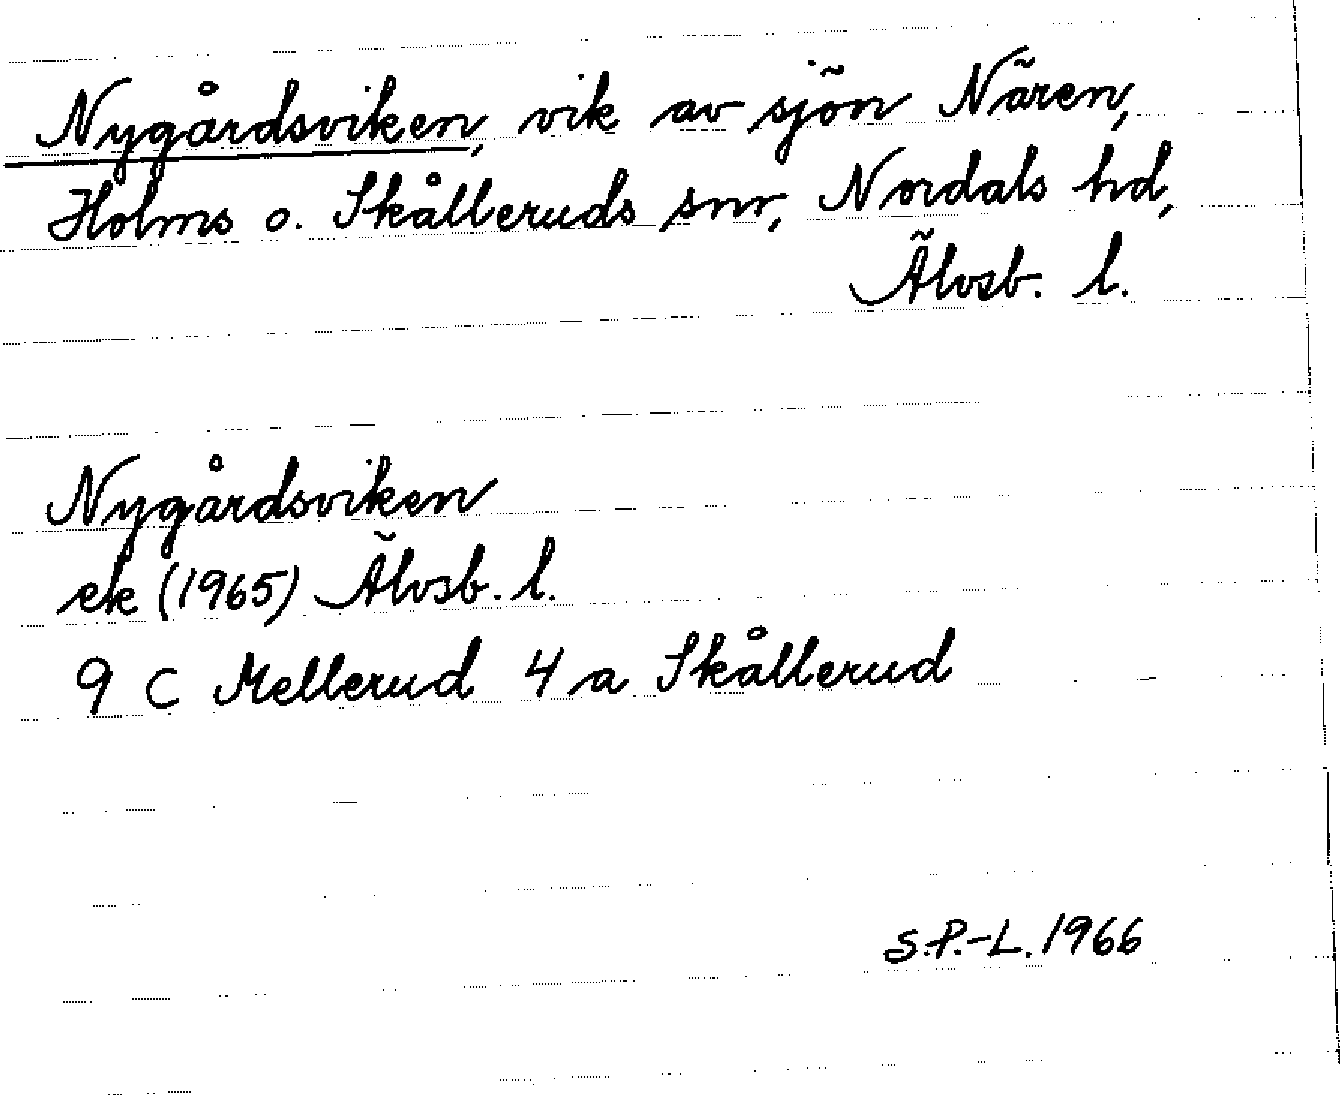 Nygårdsviken, vik av sjön Nären,
Holms o. Skålleruds snr, Nordals hd,
Älvsb. l.
Nygårdsviken
ek (1965) Älvsb. l.
9 C Mellerud 4 a Skållerud
S.P.-L. 1966